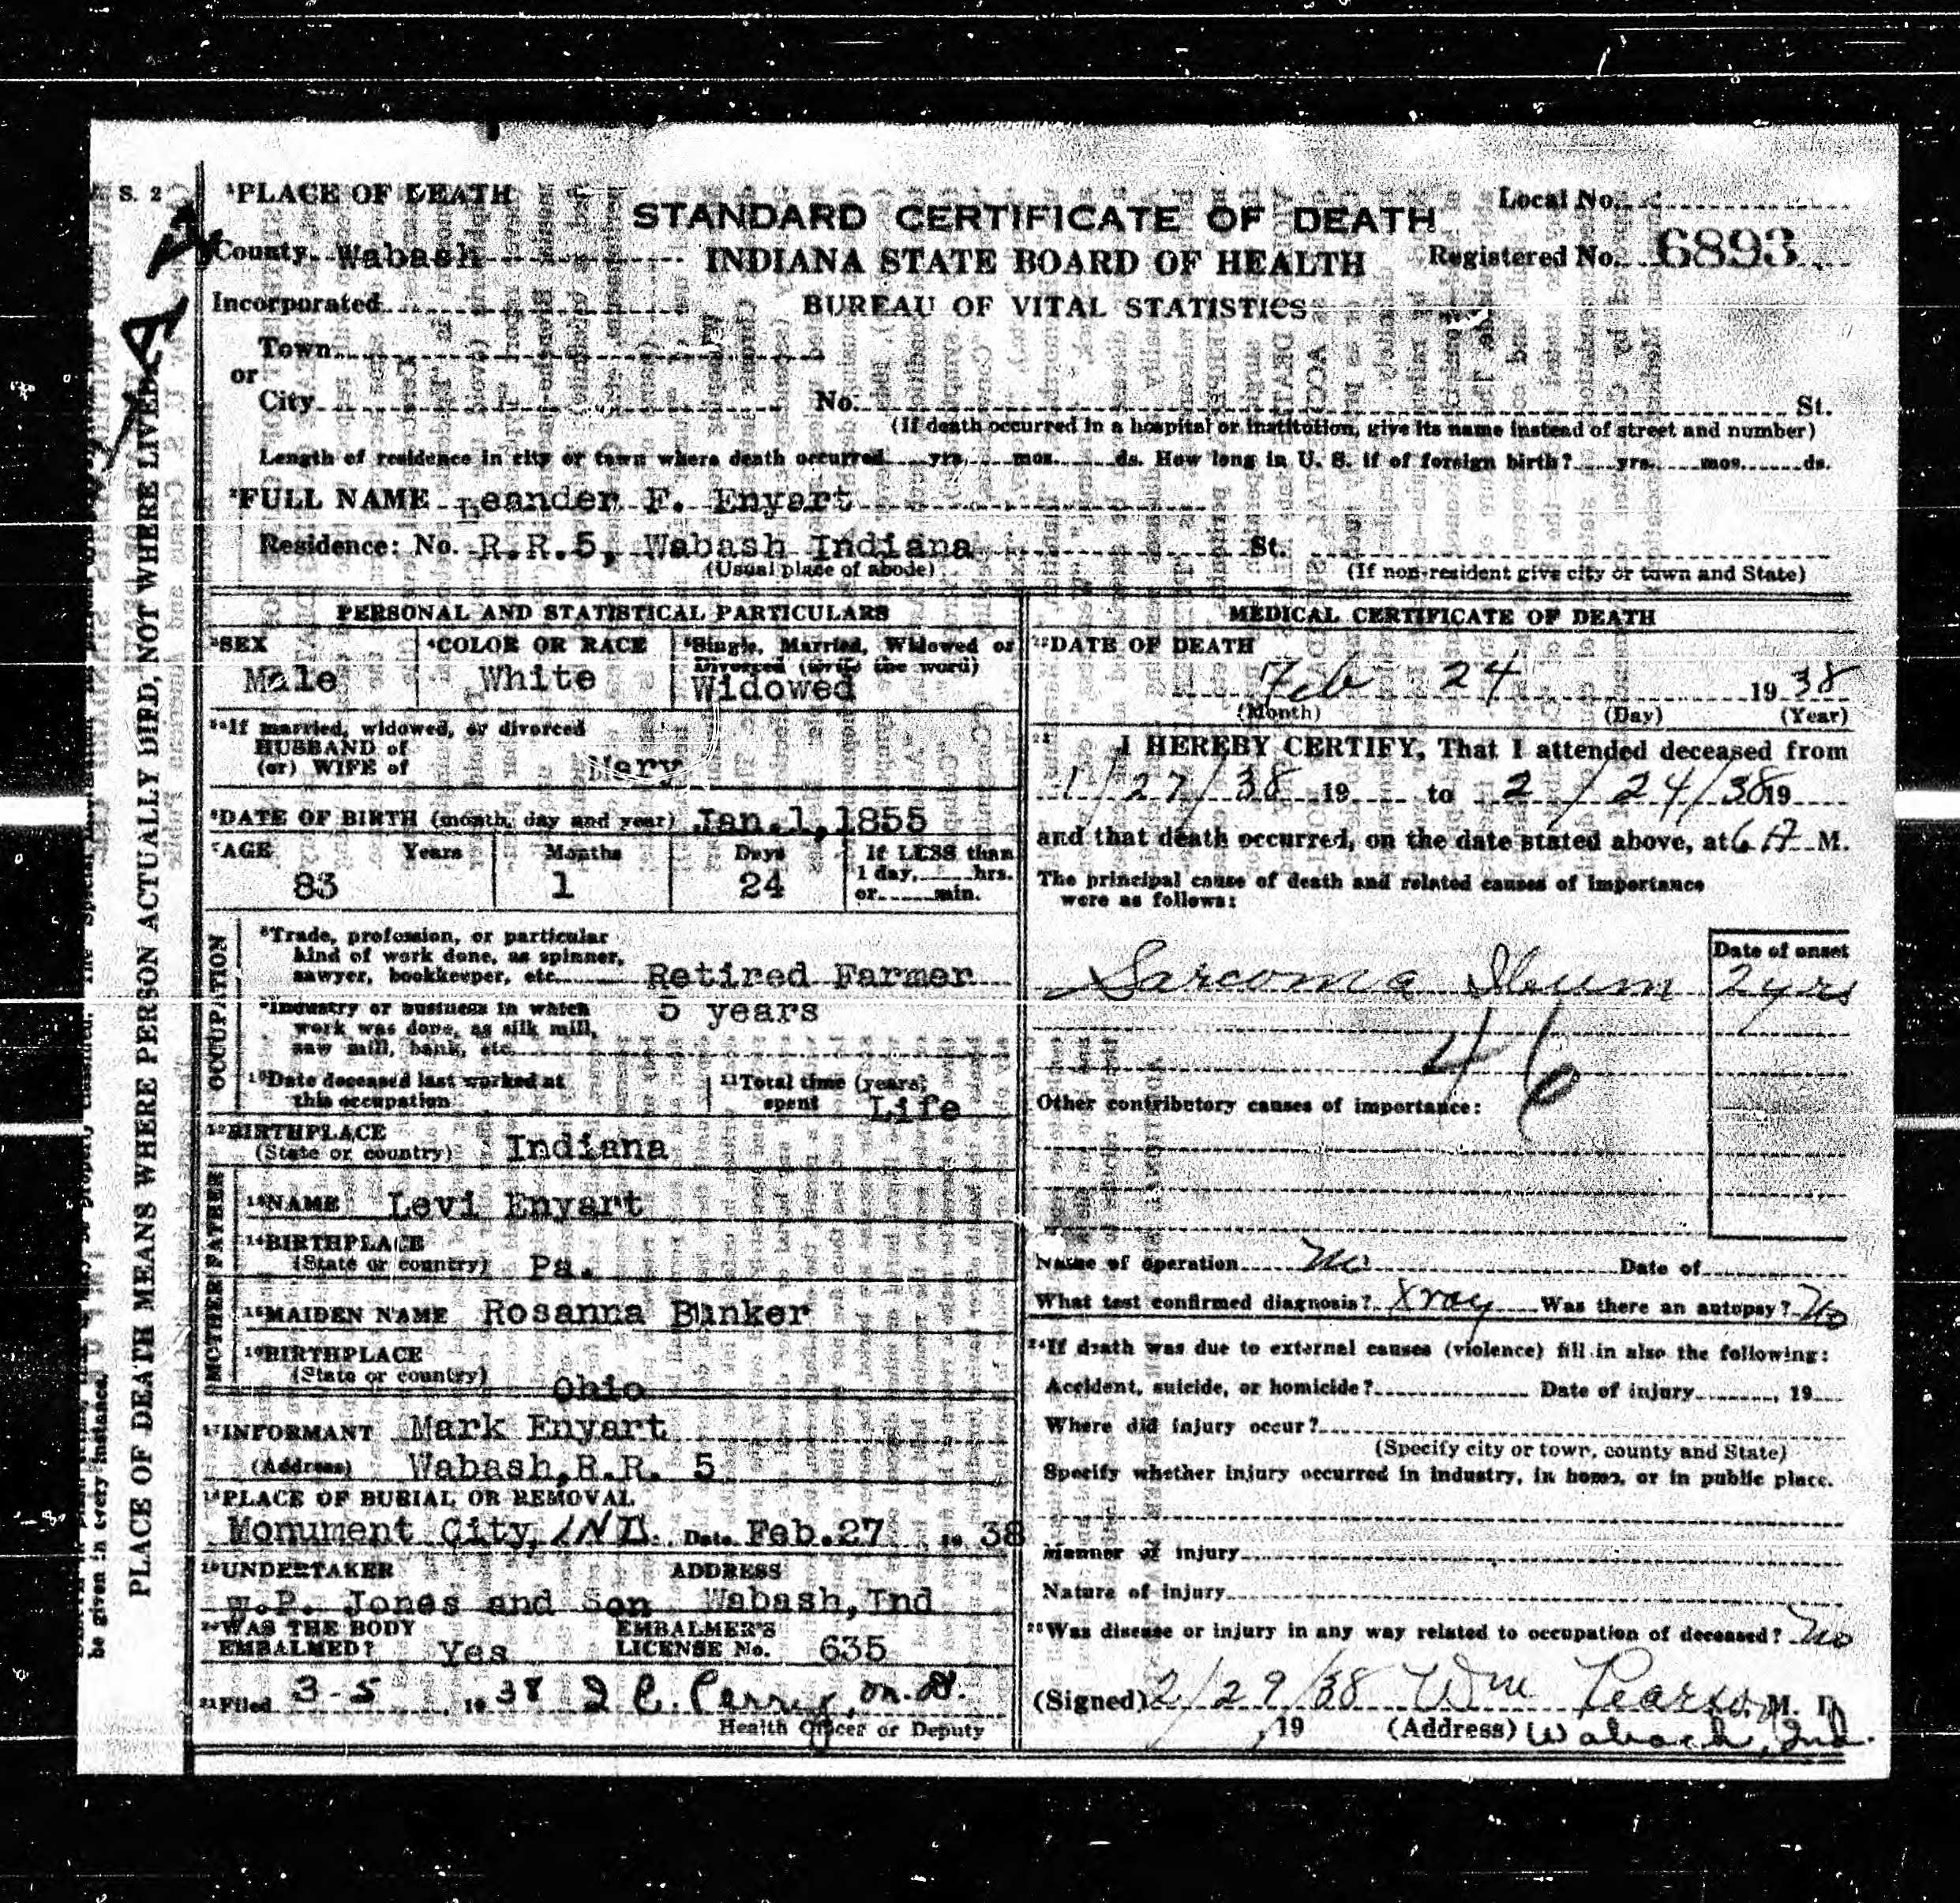 S. 2
¹PLACE OF DEATH
STANDARD CERTIFICATE OF DEATH
Local No.
County Wabash
INDIANA STATE BOARD OF HEALTH
Registered No. 6893
Incorporated
BUREAU OF VITAL STATISTICS
Town
or
City No. St.
(If death occurred in a hospital or institution, give its name instead of street and number)
Length of residence in city or town where death occurred yrs. mos. ds. How long in U. S. if of foreign birth? yrs. mos. ds.
²FULL NAME Leander F. Enyart
Residence: No. R.R.5, Wabash Indiana St.
(Usual place of abode)
(If non-resident give city or town and State)
PERSONAL AND STATISTICAL PARTICULARS
³SEX
Male
⁴COLOR OR RACE
White
⁵Single, Married, Widowed or
Divorced (write the word)
Widowed
⁵ᵃIf married, widowed, or divorced
HUSBAND of
(or) WIFE of Mary
⁶DATE OF BIRTH (month, day and year) Jan.1,1855
⁷AGE Years Months Days If LESS than
1 day, hrs.
83 1 24 or min.
OCCUPATION
⁸Trade, profession, or particular
kind of work done, as spinner,
sawyer, bookkeeper, etc. Retired Farmer
⁹Industry or business in which 5 years
work was done, as silk mill,
saw mill, bank, etc.
¹⁰Date deceased last worked at
this occupation
¹¹Total time (years)
spent Life
¹²BIRTHPLACE
(State or country) Indiana
FATHER
¹³NAME Levi Enyart
¹⁴BIRTHPLACE
(State or country) Pa.
MOTHER
¹⁵MAIDEN NAME Rosanna Bunker
¹⁶BIRTHPLACE
(State or country) Ohio
¹⁷INFORMANT Mark Enyart
(Address) Wabash,R.R. 5
¹⁸PLACE OF BURIAL OR REMOVAL
Monument City, IND. Date Feb.27 19 38
¹⁹UNDERTAKER ADDRESS
W.P. Jones and Son Wabash,Ind
²⁰WAS THE BODY
EMBALMED? Yes
EMBALMER'S
LICENSE No. 635
²¹Filed 3-5, 19 38 M.D.
Health Officer or Deputy
MEDICAL CERTIFICATE OF DEATH
²²DATE OF DEATH
Feb 24 19 38
(Month) (Day) (Year)
²³ I HEREBY CERTIFY, That I attended deceased from
1/27/38 19 to 2/24/38 19
and that death occurred, on the date stated above, at 6 A M.
The principal cause of death and related causes of importance
were as follows:
Date of onset
Sarcoma Ileum 2 yrs
46
Other contributory causes of importance:
Name of operation No Date of
What test confirmed diagnosis? Xray Was there an autopsy? No
²⁴If death was due to external causes (violence) fill in also the following:
Accident, suicide, or homicide? Date of injury , 19
Where did injury occur?
(Specify city or town, county and State)
Specify whether injury occurred in industry, in home, or in public place.
Manner of injury
Nature of injury
²⁵Was disease or injury in any way related to occupation of deceased? No
(Signed) 2/29/38 Wm Pearson M. D.
, 19 (Address) Wabash, Ind.
PLACE OF DEATH MEANS WHERE PERSON ACTUALLY DIED, NOT WHERE LIVED
be given in every instance.